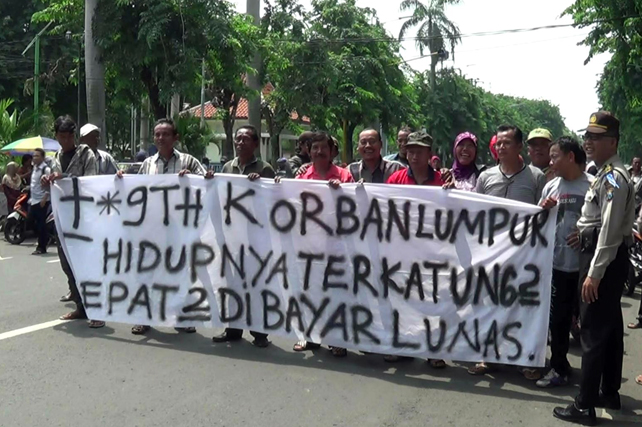 ±*9TH KORBAN LUMPUR
HIDUPNYA TERKATUNG2
EPAT2 DiBAYAR LUNAS.